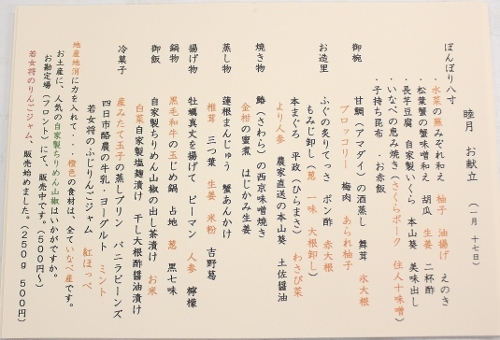 睦月　お献立　（一月　十七日）
ぼんぼり八寸
・水菜の蕪みぞれ和え　柚子　油揚げ　えのき
・松葉蟹の蟹味噌和え　胡瓜　生姜　二杯酢
・長芋豆腐　自家製いくら　本山葵　美味出し
・いなべの恵み焼き（さくらポーク　住人十味噌）
・子持ち昆布　・お赤飯
御椀
甘鯛（アマダイ）の酒蒸し　舞茸　氷大根
ブロッコリー　梅肉　あられ柚子
お造里
ふぐの炙りてっさ　ポン酢　赤大根
もみじ卸し（葱　一味　大根卸し）
本まぐろ　平政（ひらまさ）　わさび菜
より人参　農家直送の本山葵　土佐醤油
焼き物
鰆（さわら）の西京味噌焼き
金柑の蜜煮　はじかみ生姜
蒸し物
蓮根まんじゅう　蟹あんかけ
椎茸　三つ葉　生姜　米粉　吉野葛
揚げ物
牡蠣真丈を揚げて　ピーマン　人参　檸檬
鍋物
黒毛和牛の玉じめ鍋　占地　葱　黒七味
御飯
自家製ちりめん山椒の出し茶漬け　お米
白菜自家製塩麹漬け　干し大根酢醤油漬け
冷菓子
産みたて玉子の蒸しプリン　バニラビーンズ
四日市酪農の牛乳・ヨーグルト　ミント
若女将のふじりんごジャム　紅ほっぺ
地産地消に力を入れて・・・橙色の食材は、全ていなべ産です。
お土産に、人気の自家製ちりめん山椒はいかがですか。
お勘定場（フロント）にて、販売中です。（５００円～）
若女将のりんごジャム、販売始めました。（２５０ｇ　５００円）